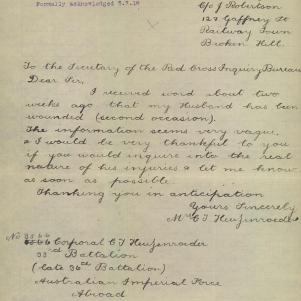 Formally Acknowledged 5.7.18
C/o J Robertson
127 Gaffney St
Railway Town
Broken Hill.
To the Secretary of the Red Cross Inquiry Bureau
Dear Sir,
I received word about two
weeks ago that my Husband has been
wounded (second occasion).
The information seems very vague,
& I would be very thankful to you
if you would inquire into the real
nature of his injuries & let me know
as soon as possible
Thanking you in anticipation
Yours Sincerely
Mrs C J Heuzenroeder
No 3566
Corporal C J Heuzenroeder
33rd Battalion
(late 36th Battalion)
Australian Imperial Force
Abroad